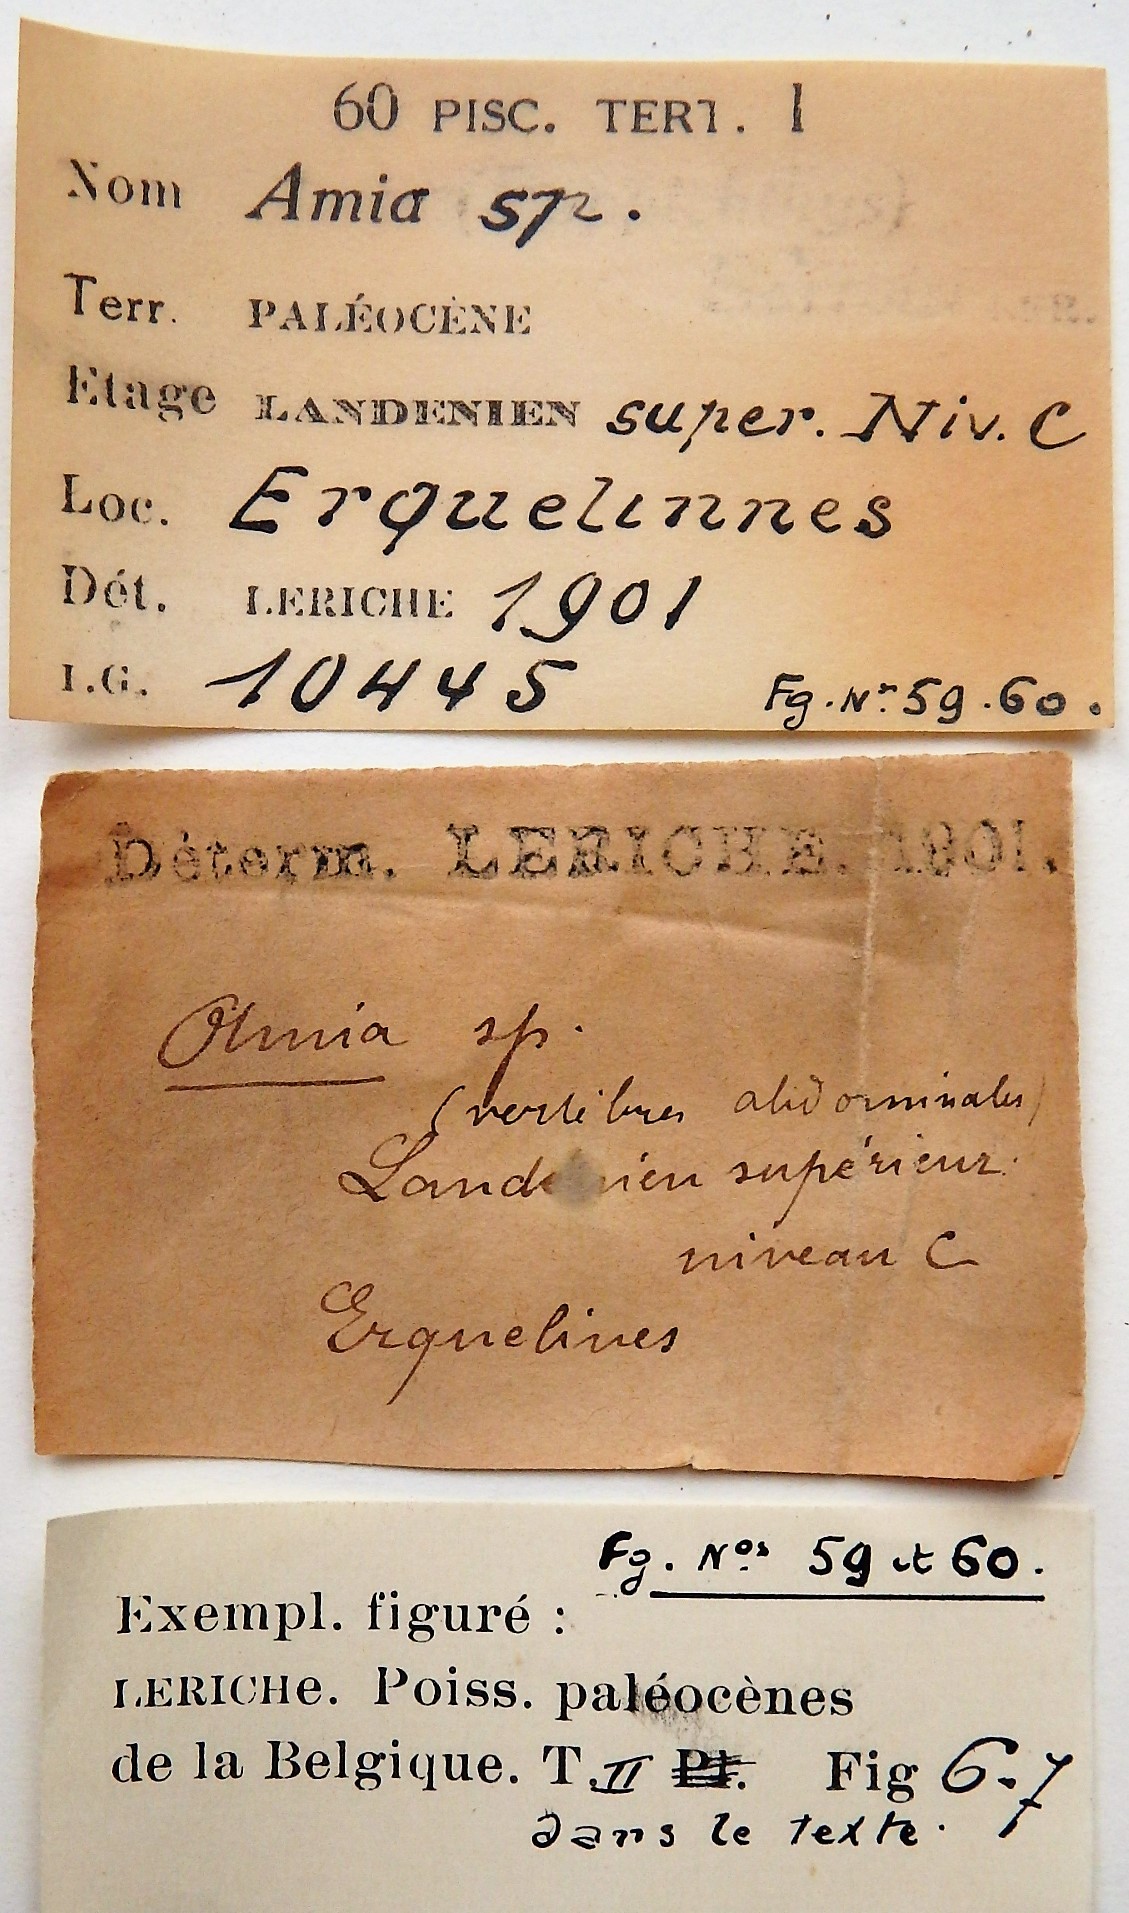 60 PISC. TERT. I
Nom Amia sp.
Terr. PALÉOCÈNE
Etage LANDENIEN super. Niv. C
Loc. Erquelinnes
Dét. LERICHE 1901
I.G. 10445 Fg. Nr. 59.60.
Déterm. LERICHE. 1901.
Amia sp.
(vertèbres abdominales)
Landenien supérieur.
niveau C
Erquelines
Fg. Nos 59 et 60.
Exempl. figuré :
LERICHe. Poiss. paléocènes
de la Belgique. T. II Pl. Fig 6-7
dans le texte.